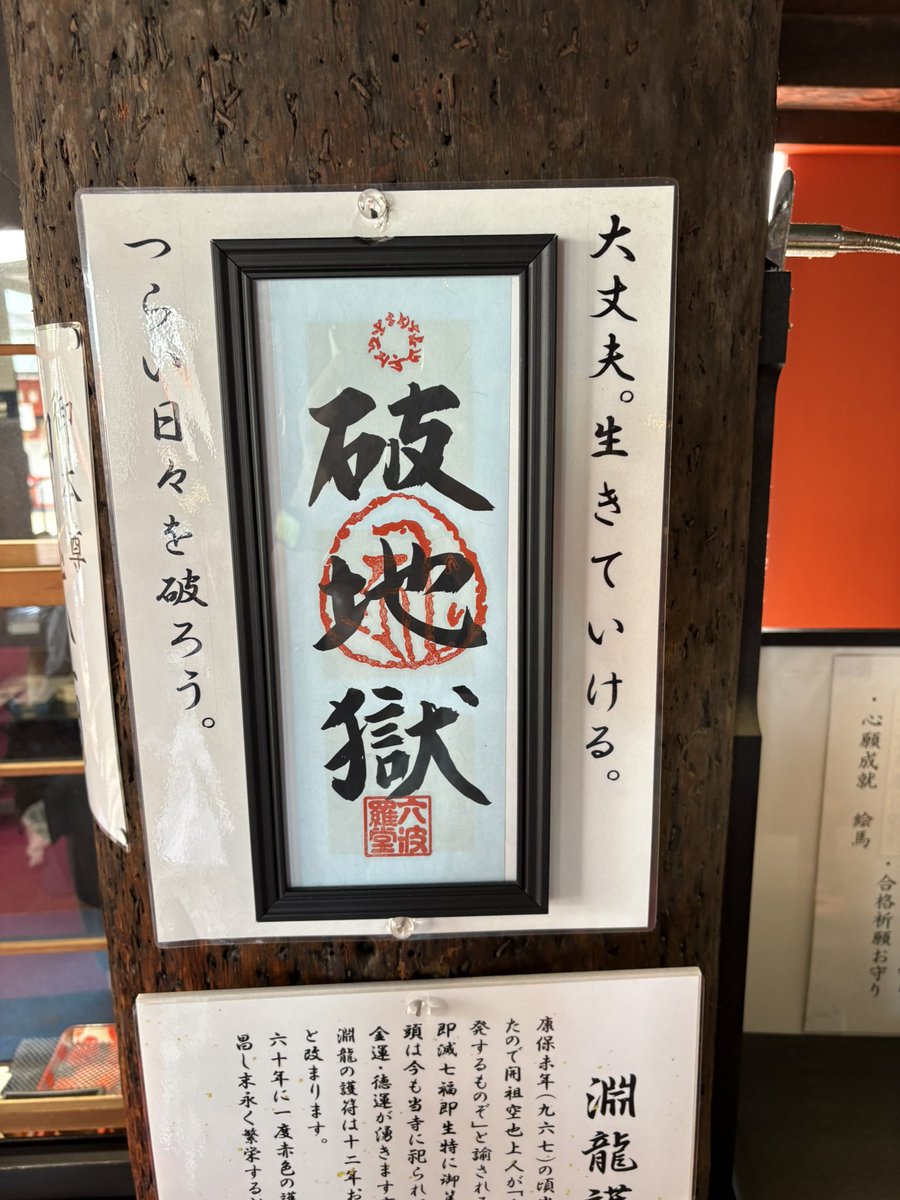 大丈夫。生きていける。
破地獄
六波羅堂
つらい日々を破ろう。
御本尊
・心願成就 絵馬
・合格祈願お守り
淵龍護
康保未年(九六七)の頃
たので開祖空也上人が「
発するものぞ」と諭される
即滅七福即生特に御
頭は今も当寺に祀られ
金運・徳運が湧きます
淵龍の護符は十二年お
と改まります。
六十年に一度赤色の護
昌し末永く繁栄する